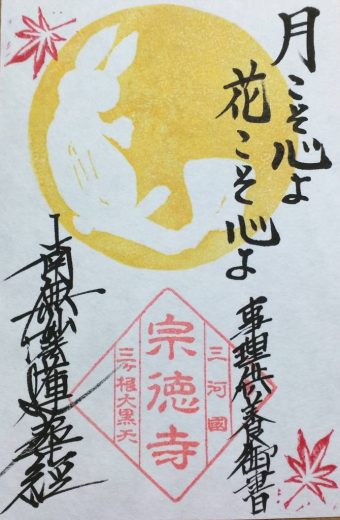 月こそ心よ
花こそ心よ
事理供養御書
三河國
宗徳寺
三ヶ根大黒天
南無妙法蓮華経